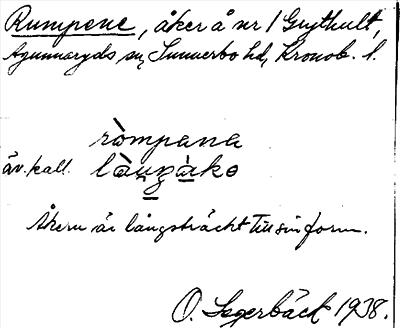 Rumpene, åker å nr 1 Gujthult,
Agunnaryds sn, Sunnerbo hd, Kronob. l.
ròmpana
äv. kall. làŋgàkə
Åkern är långsträckt till sin form.
O. Segerbäck 1938.